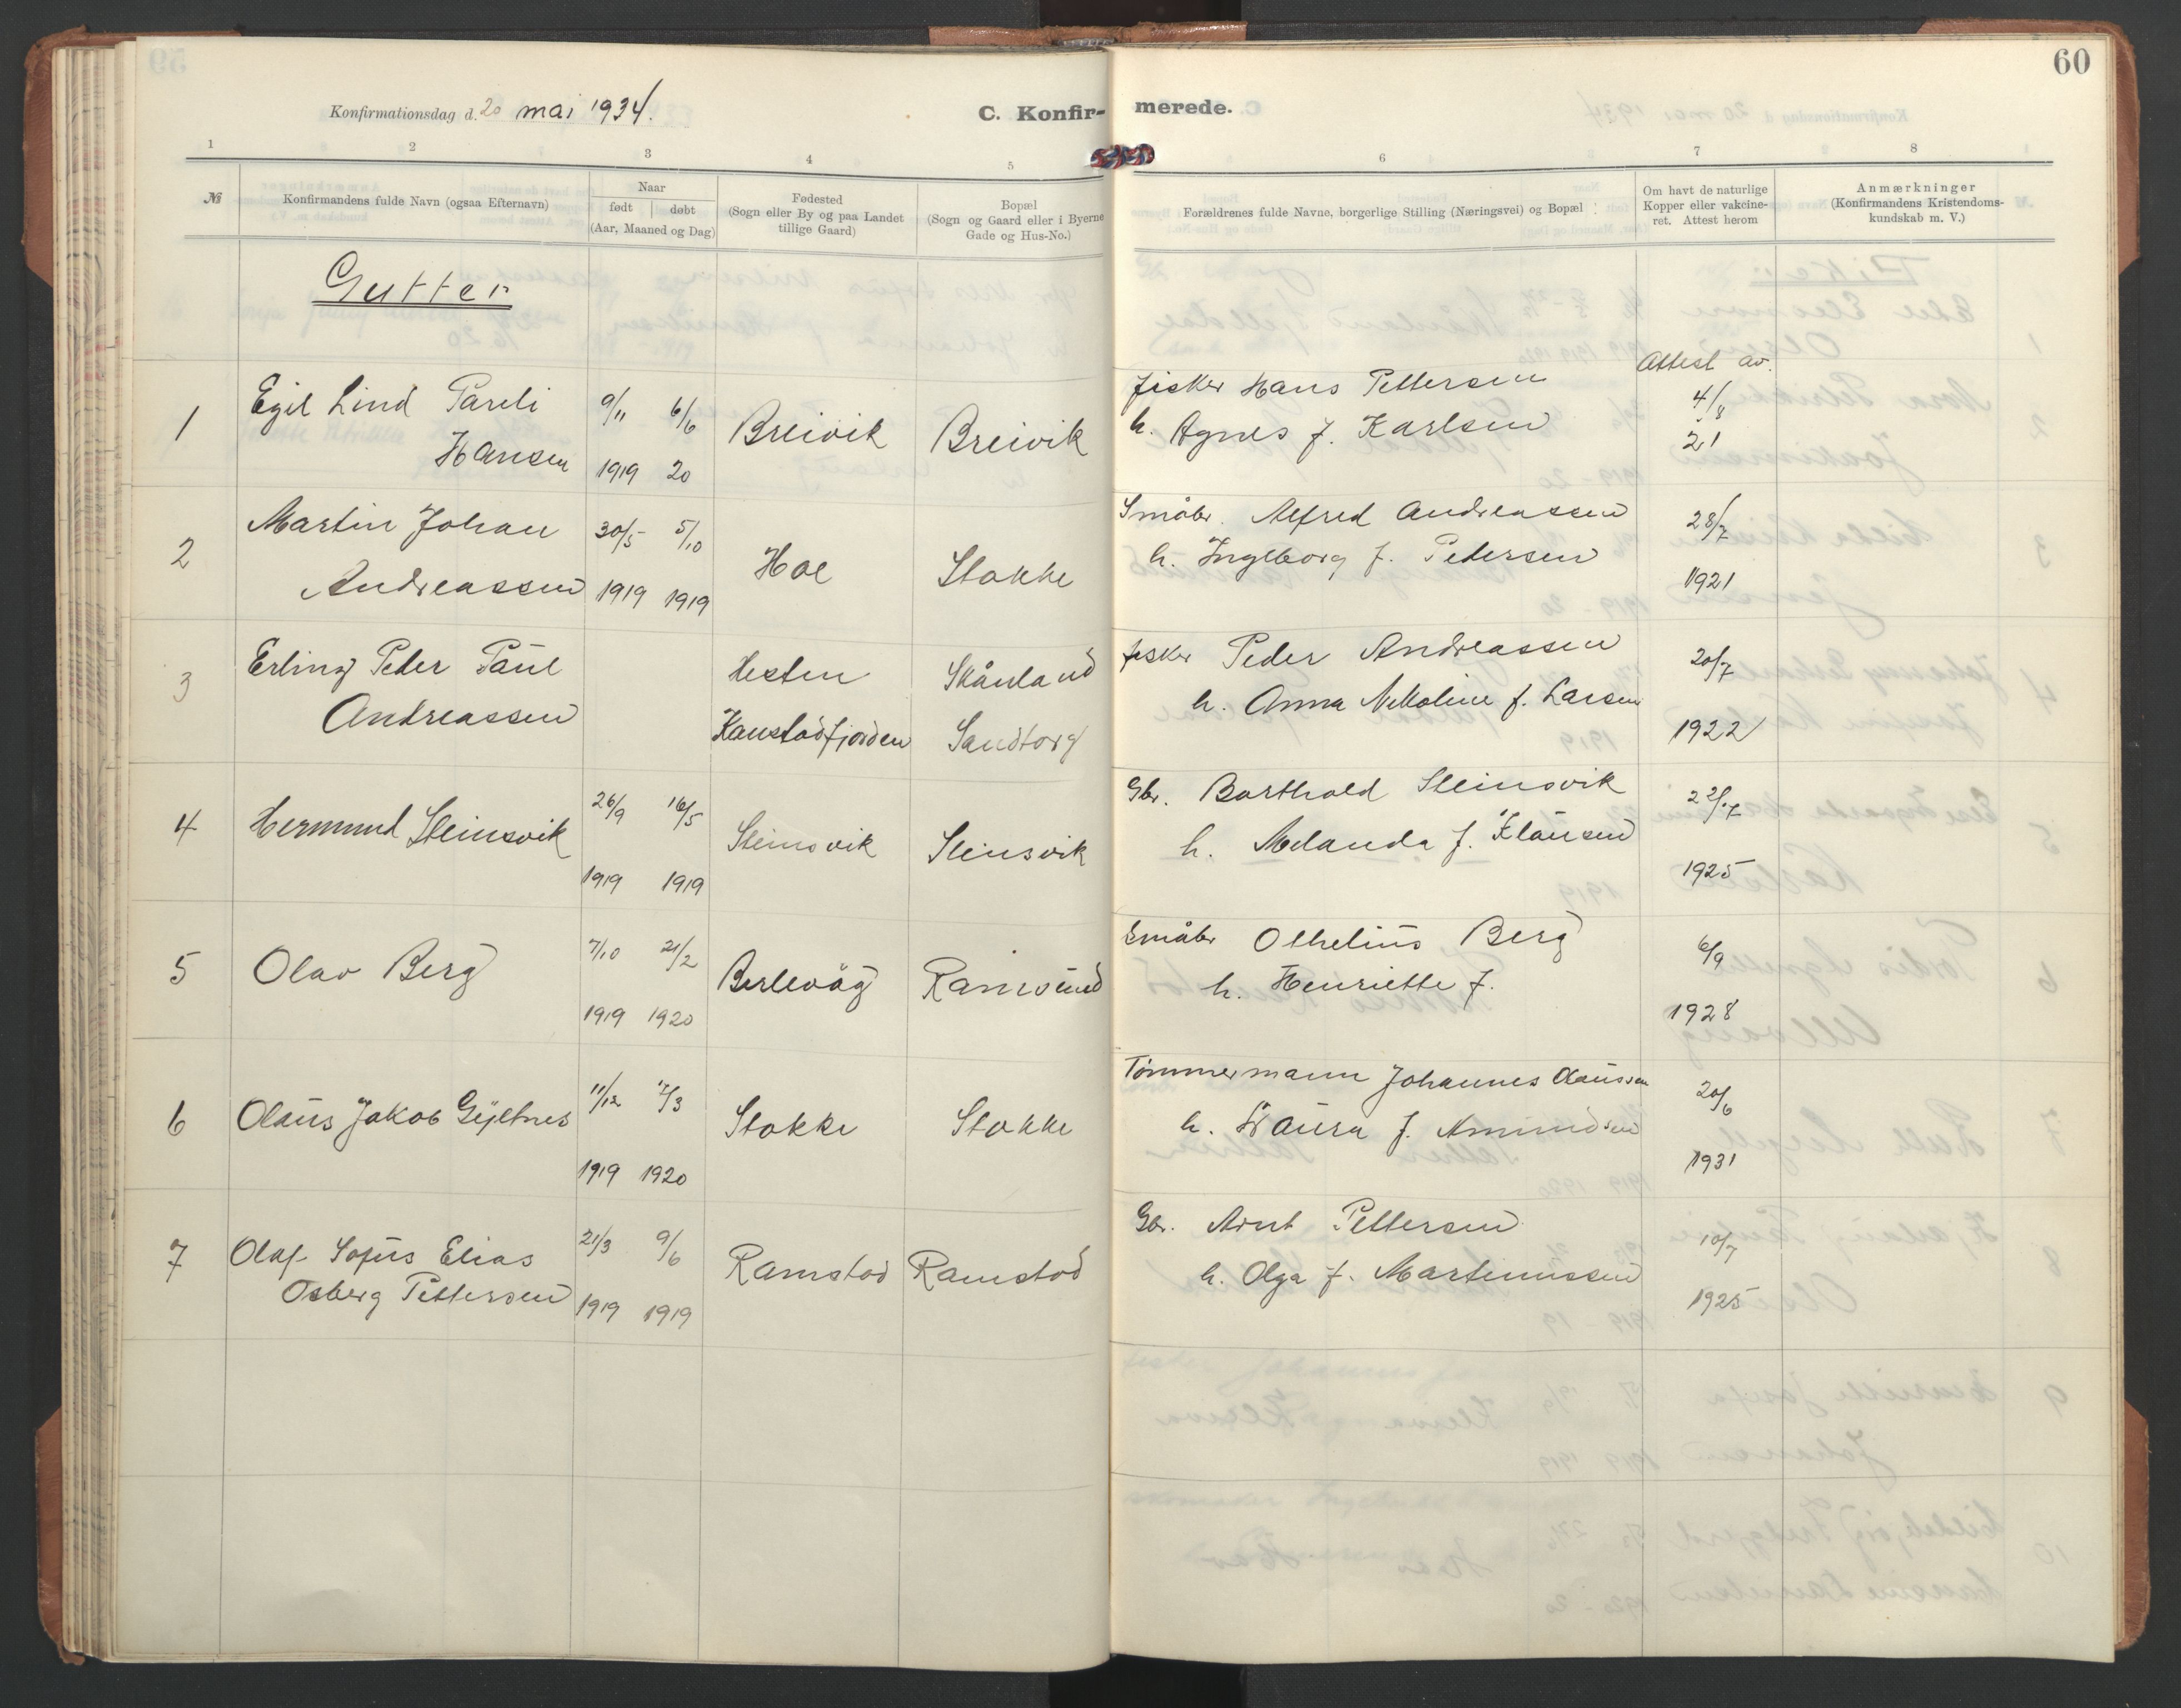 60
Konfirmationsdag d. 20 mai 1934.
C. Konfir- merede.
1 2 3 4 5 6 7 8
№
Konfirmandens fulde Navn (ogsaa Efternavn)
Naar
født døbt
(Aar, Maaned og Dag)
Fødested
(Sogn eller By og paa Landet
tillige Gaard)
Bopæl
(Sogn og Gaard eller i Byerne
Gade og Hus-No.)
Forældrenes fulde Navne, borgerlige Stilling (Næringsvei) og Bopæl
Om havt de naturlige
Kopper eller vakcine-
ret. Attest herom
Anmærkninger
(Konfirmandens Kristendoms-
kundskab m. V.)
Gutter
Attest av.
1 Egil Lind Pareli 9/11 6/6 Breivik Breivik fisker Hans Pettersen 4/8
Hansen 1919 20 h. Agnes f. Karlsen 21
2 Martin Johan 30/5 5/10 Hol Stokke Småbr. Alfred Andreassen 28/7
Andreassen 1919 1919 h. Ingeborg f. Petersen 1921
3 Erling Peder Paul Hesten Skånland fisker Peder Andreassen 20/7
Andreassen Kanstadfjorden Sandtorg h. Anna Nikoline f. Larsen 1922
4 Hermund Steinsvik 26/9 16/5 Steinsvik Steinsvik Gbr. Barthold Steinsvik 22/7
1919 1919 h. Melanda f. Klausen 1925
5 Olav Berg 7/10 21/2 Berlevåg Ramsund Småbr Othelius Berg 6/9
1919 1920 h. Henriette f. 1928
6 Olaus Jakob Gyltnes 11/12 /3 Stokke Stokke Tømmermann Johannes Olaussen 20/6
1919 1920 h. Laura f. Amundsen 1931
7 Olaf Sofus Elias 21/3 9/6 Ramstad Ramstad Gbr. Arnt Pettersen 10/7
Osberg Pettersen 1919 1919 h. Olga f. Martinussen 1925